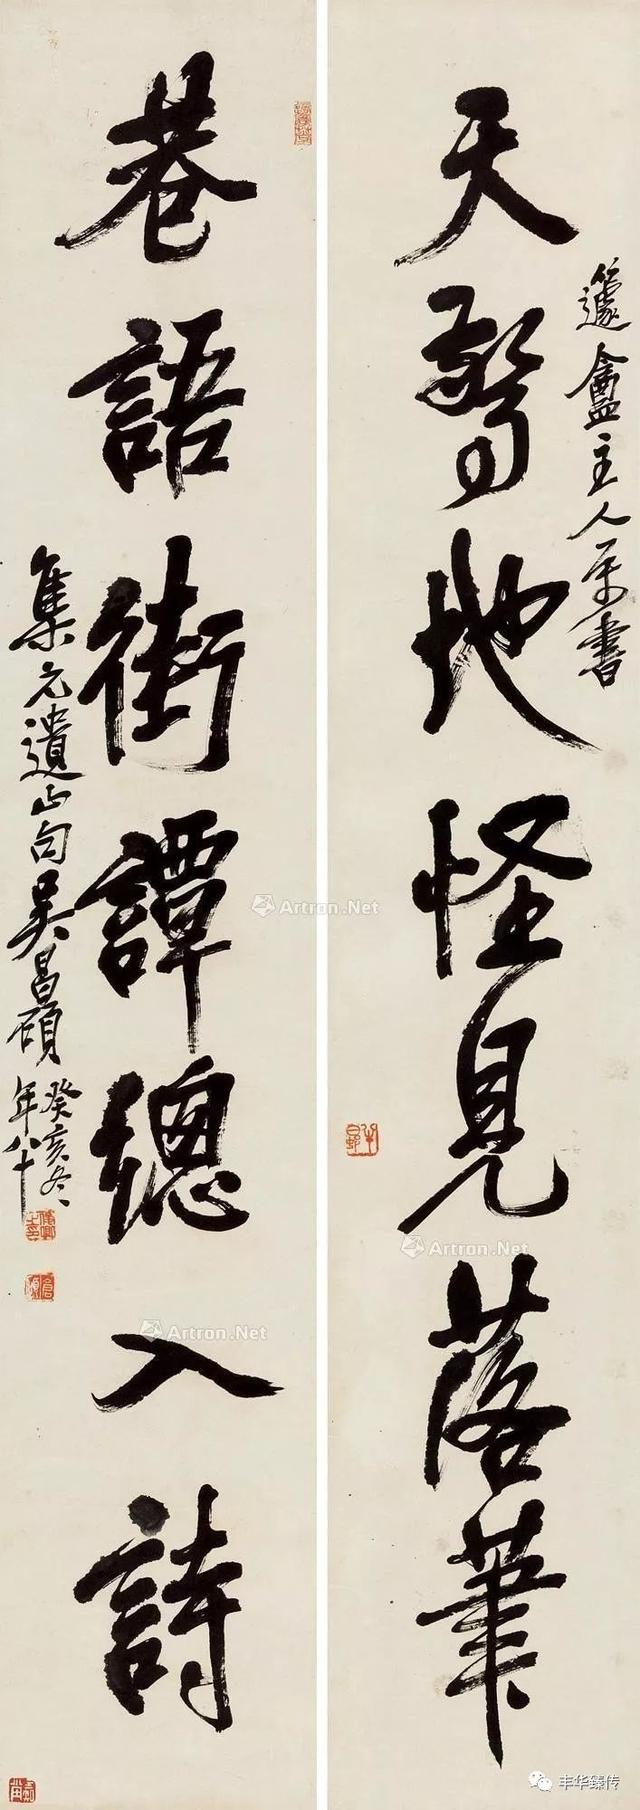 籧盦主人属書
天驚地怪見落筆
巷語街譚總入詩
集元遺山句吳昌碩
癸亥冬
年八十
Artron.Net
Artron.Net
Artron.Net
丰华臻传